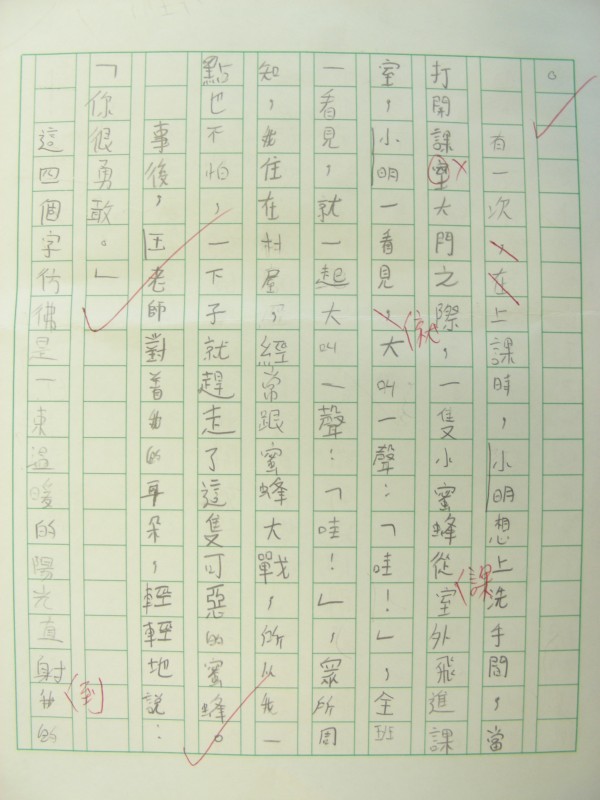 。
有一次，在上課時，小明想上洗手間，當
打開課室大門之際，一隻小蜜蜂從課室外飛進課
室，小明一看見，就大叫一聲：「哇！」，全班
一看見，就一起大叫一聲：「哇！」，眾所周
知，我住在村屋，經常跟蜜蜂大戰，所以我一
點也不怕，一下子就趕走了這隻可惡的蜜蜂。
事後，王老師對着我的耳朵，輕輕地說：
「你很勇敢。」
這四個字仿佛是一束溫暖的陽光直射到我的